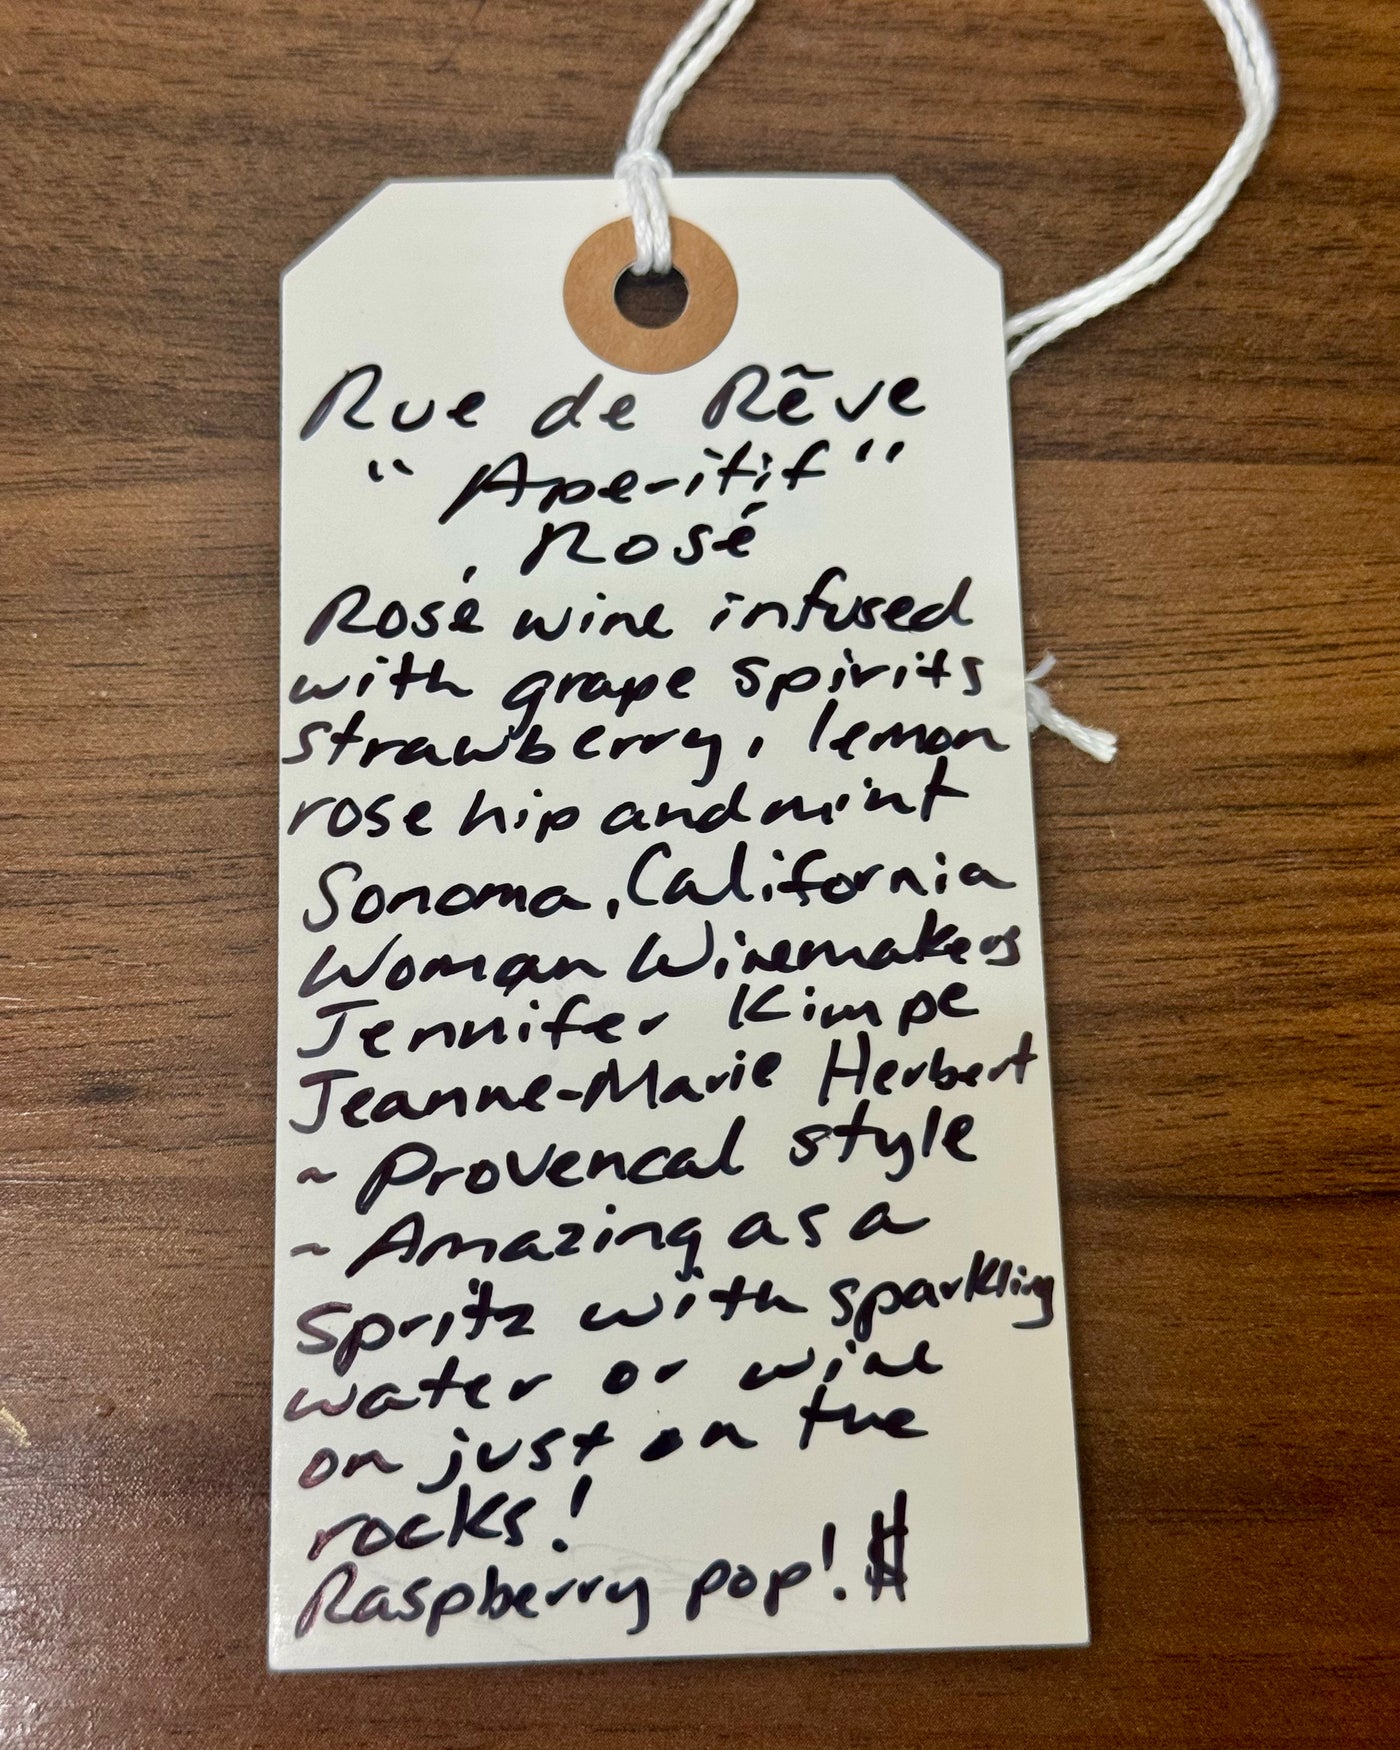 Rue de Rẽve
"Aperitif"
Rosé
Rosé wine infused
with grape spirits
strawberry, lemon
rose hip and mint
Sonoma, California
Woman Winemakers
Jennifer Kimpe
Jeanne-Marie Herbert
~ Provencal style
~ Amazing as a
Spritz with sparkling
water or wine
on just on the
rocks!
Raspberry pop!